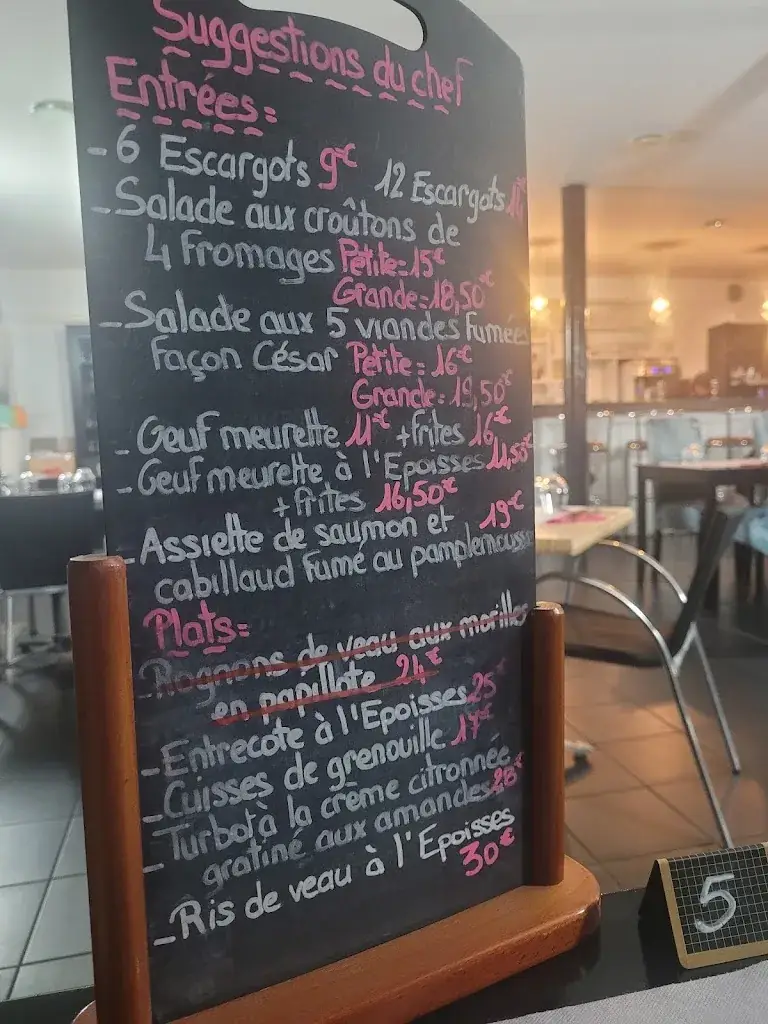 Suggestions du chef
Entrées:
- 6 Escargots 9€ 12 Escargots
- Salade aux croûtons de
4 Fromages Petite=15€
Grande=18,50€
- Salade aux 5 viandes Fumées
Façon César Petite=16€
Grande=19,50€
- Oeuf meurette 11€ +frites 16€
- Oeuf meurette à l'Epoisses 11,50€
+frites 16,50€
- Assiette de saumon et 19€
cabillaud fumé au pamplemousse
Plats=
- Rognons de veau aux morilles
en papillote 24€
- Entrecote à l'Epoisses 25€
- Cuisses de grenouille 17€
- Turbot à la crème citronnée
gratiné aux amandes 28€
- Ris de veau à l'Epoisses
30€
5